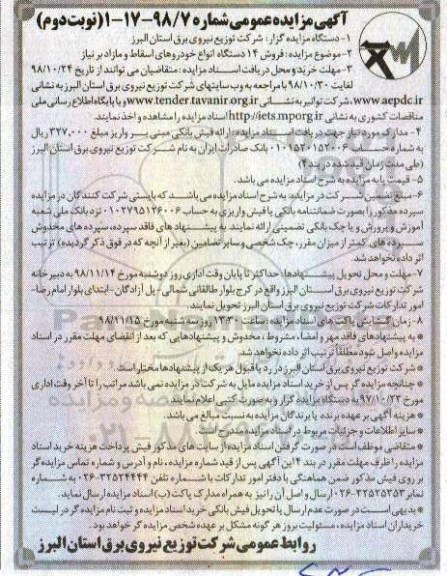 آگهی مزایده عمومی شماره ۹۸/۷-۱۷-۱ (نوبت دوم)
۱- دستگاه مزایده گزار: شرکت توزیع نیروی برق استان البرز
۲- موضوع مزایده: فروش ۱۴ دستگاه انواع خودروهای اسقاط و مازاد بر نیاز
۳- مهلت خرید و محل دریافت اسناد مزایده: متقاضیان می توانند از تاریخ ۹۸/۱۰/۲۴
لغایت ۹۸/۱۰/۳۰ با مراجعه به وب سایتهای شرکت توزیع نیروی برق استان البرز به نشانی
www.aepdc.ir، شرکت توانیر به نشانی www.tender.tavanir.org.ir و یا پایگاه اطلاع رسانی ملی
مناقصات کشوری به نشانی http://iets.mporg.ir اسناد مزایده را مشاهده و اخذ نمایند.
۴- مدارک مورد نیاز جهت دریافت اسناد مزایده: ارائه فیش بانکی مبنی بر واریز مبلغ ۳۲۷,۰۰۰ ریال
به شماره حساب ۰۱۰۱۵۲۰۱۵۲۰۰۶ بانک صادرات ایران به نام شرکت توزیع نیروی برق استان البرز
(طی مدت زمان قید شده در بند ۳)
۵- قیمت پایه مزایده به شرح اسناد مزایده می باشد.
۶- مبلغ تضمین شرکت در مزایده: به شرح اسناد مزایده می باشد که بایستی شرکت کنندگان در مزایده
سپرده مذکور را بصورت ضمانتنامه بانکی یا فیش واریزی به حساب ۰۱۰۲۷۹۵۱۲۶۰۰۶ نزد بانک ملی شعبه
آموزش و پرورش و یا چک بانکی تضمینی ارائه نمایند. به پیشنهاد های فاقد سپرده، سپرده های مخدوش
سپرده های کمتر از میزان مقرر، چک شخصی و سایر تضامین (بغیر از آنچه که در فوق ذکر گردیده) ترتیب
اثر داده نخواهد شد.
۷- مهلت و محل تحویل پیشنهادها: حداکثر تا پایان وقت اداری روز دوشنبه مورخ ۹۸/۱۱/۱۴ به دبیرخانه
شرکت توزیع نیروی برق استان البرز واقع در کرج بلوار طالقانی شمالی - پل آزادگان - ابتدای بلوار امام رضا -
امور تدارکات شرکت توزیع نیروی برق استان البرز تحویل نمایند.
۸- زمان گشایش پاکت های اسناد مزایده: ساعت ۱۳:۳۰ روز سه شنبه مورخ ۹۸/۱۱/۱۵
* به پیشنهادهای فاقد مهر و امضاء، مشروط، مخدوش و پیشنهادهایی که بعد از انقضای مهلت مقرر در اسناد
مزایده واصل شود مطلقاً ترتیب اثر داده نخواهد شد.
* شرکت توزیع نیروی برق استان البرز در رد یا قبول هر یک از پیشنهادها مختار است
* چنانچه مزایده گر پس از خرید اسناد مزایده مایل به شرکت در مزایده نمی باشد مراتب را تا آخر وقت اداری
مورخ ۹۷/۱۰/۲۳ به دستگاه مزایده گزار و به صورت کتبی اعلام نمایند.
* هزینه آگهی بر عهده برنده یا برندگان مزایده به نسبت مبالغ می باشد.
* سایر اطلاعات و جزئیات مربوط در اسناد مزایده مندرج است.
* متقاضی موظف است در صورت گرفتن اسناد مزایده از سایت های مذکور فیش پرداخت هزینه خرید اسناد
مزایده را ظرف مهلت مقرر در بند ۴ این آگهی پس از قید شماره مزایده، نام و آدرس و شماره تماس مزایده گر
بر روی فیش مذکور ضمن هماهنگی با دفتر امور تدارکات با شماره تلفن ۳۲۵۲۴۴۴۴-۰۲۶ به شماره
نمابر ۳۲۵۲۵۳۵۳-۰۲۶ ارسال و اصل آن را نیز به همراه مدارک پاکت (ب) اسناد مزایده ارسال نماید.
* بدیهی است در صورت عدم ارسال یا تحویل فیش بانکی خرید اسناد مزایده و ثبت نام مزایده گر در لیست
خریداران اسناد مزایده، مسئولیت بروز هر گونه مشکل بر عهده شخص مزایده گر خواهد بود.
روابط عمومی شرکت توزیع نیروی برق استان البرز